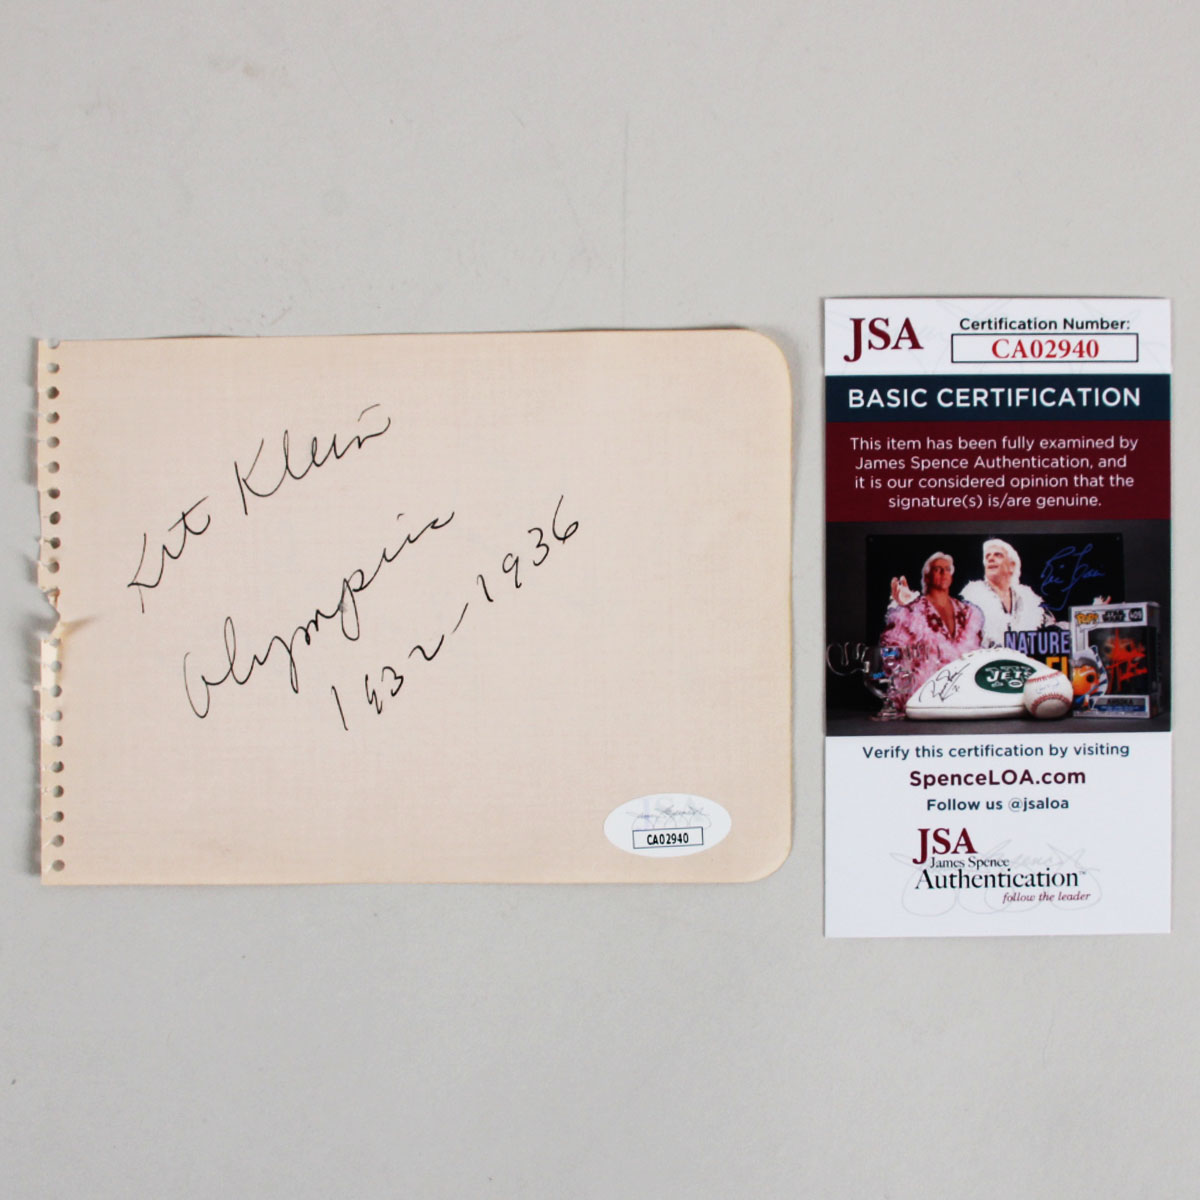 Kit Klein
Olympic
1932-1936
CA02940
JSA
Certification Number:
CA02940
BASIC CERTIFICATION
This item has been fully examined by
James Spence Authentication, and
it is our considered opinion that the
signature(s) is/are genuine.
NATURE
JETS
Verify this certification by visiting
SpenceLOA.com
Follow us @jsaloa
JSA
James Spence
Authentication™
follow the leader